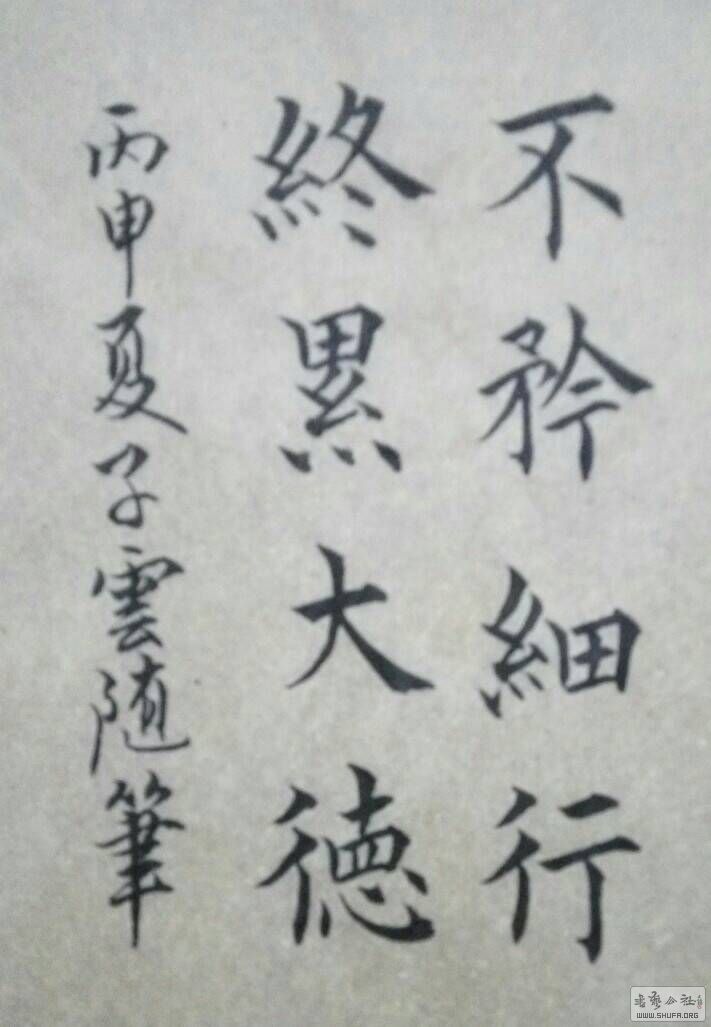 不矜細行
終累大德
丙申夏子雲随筆
書藝公社
WWW.SHUFA.ORG